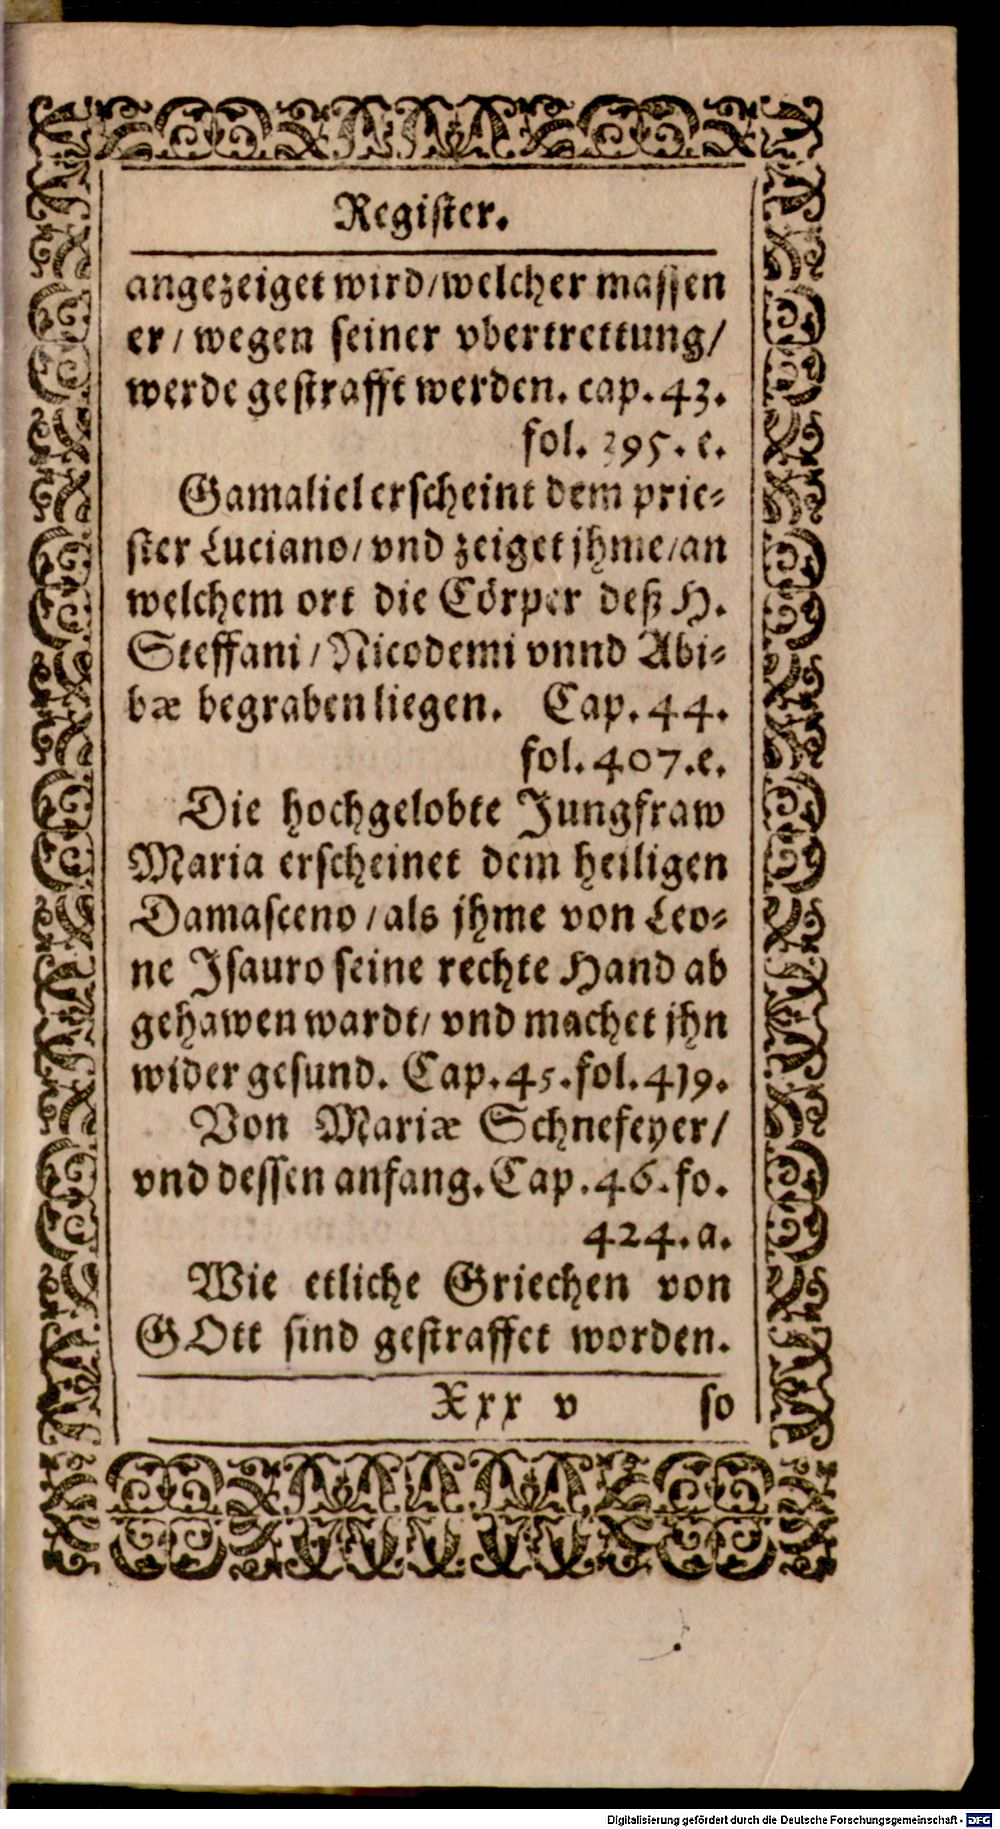 Register.
angezeiget wird/welcher massen
er/ wegen seiner vbertrettung/
werde gestrafft werden. cap. 43.
fol. 395. e.
Gamaliel erscheint dem prie-
ster Luciano/ vnd zeiget jhme/an
welchem ort die Cörper deß H.
Steffani/ Nicodemi vnnd Abi-
bæ begraben liegen. Cap. 44.
fol. 407. e.
Die hochgelobte Jungfraw
Maria erscheinet dem heiligen
Damasceno/als jhme von Leo-
ne Isauro seine rechte Hand ab
gehawen wardt/ vnd machet jhn
wider gesund. Cap. 45. fol. 419.
Von Mariæ Schnefeyer/
vnd dessen anfang. Cap. 46. fo.
424. a.
Wie etliche Griechen von
GOtt sind gestraffet worden.
Xxx v so
Digitalisierung gefördert durch die Deutsche Forschungsgemeinschaft - DFG